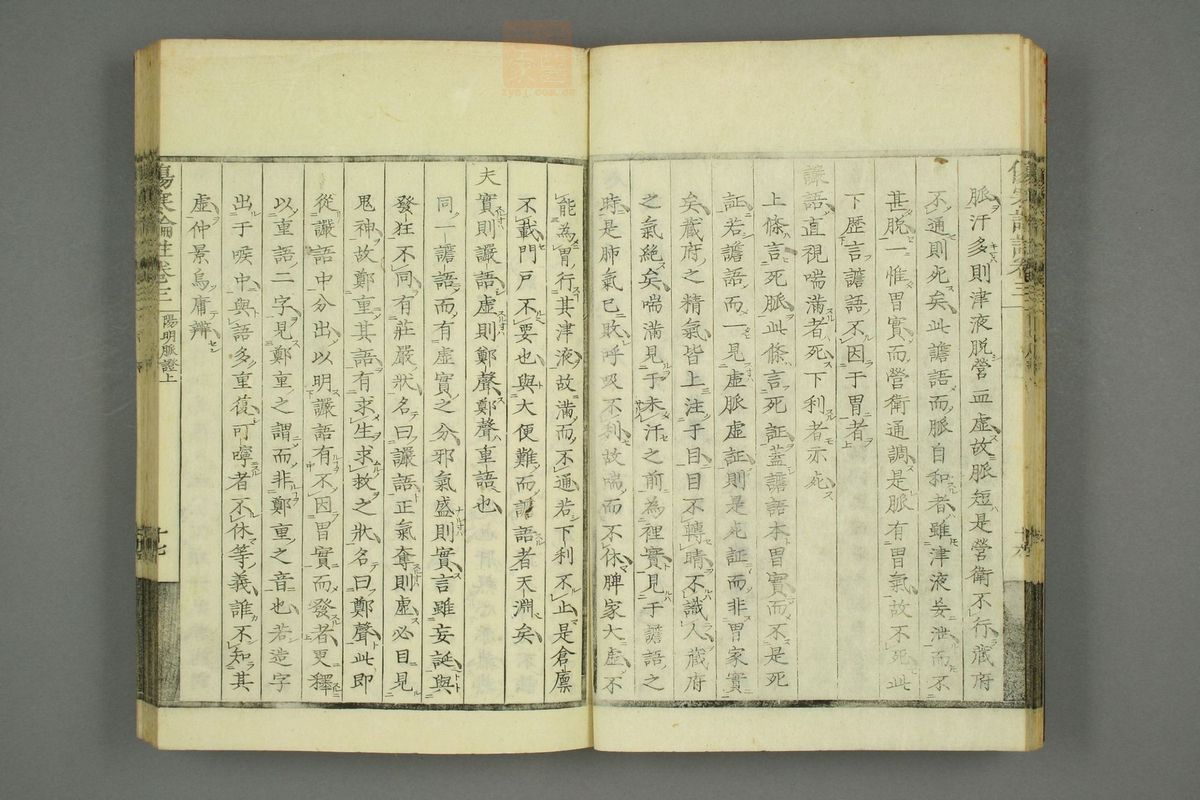 脈汗多則津液脫營血虛故脈短是營衛不行藏府
不通則死矣此譫語而脈自和者雖津液妄泄而不
甚脫一惟胃實而營衛通調是脈有胃氣故不死此
下歷言譫語不因于胃者
譫語直視喘滿者死下利者亦死
上條言死脈此條言死証蓋譫語本胃實而不是死
証若譫語而一見虛脈虛証則是死証而非胃家實
矣藏府之精氣皆上注于目目不轉睛不識人藏府
之氣絕矣喘滿見于未汗之前為裡實見于譫語之
時是肺氣已敗呼吸不利故喘而不休脾家大虛不
能為胃行其津液故滿而不通若下利不止是倉廩
不藏門戶不要也與大便難而譫語者天淵矣
夫實則譫語虛則鄭聲鄭聲重語也
同一譫語而有虛實之分邪氣盛則實言雖妄誕與
發狂不同有莊嚴狀名曰譫語正氣奪則虛必目見
鬼神故鄭重其語有求生求救之狀名曰鄭聲此即
從譫語中分出以明譫語有不因胃實而發者更釋
以重語二字見鄭重之謂而非鄭重之音也若造字
出于喉中與語多重復叮嚀者不休等義誰不知其
虛仲景烏庸辨
傷寒論註卷三 陽明脈證上
十七